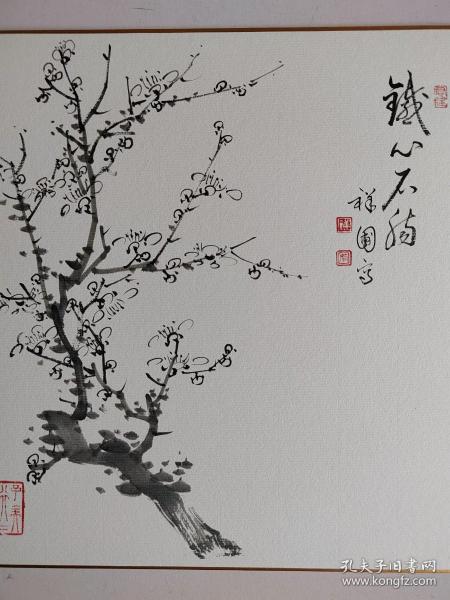 鐵心石腸
祥圃寫
孔夫子旧书网
www.kongfz.com